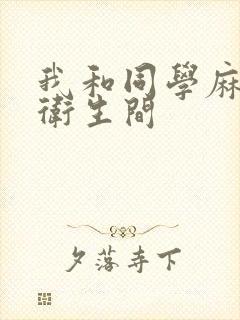 我和同學麻
衛生間
夕落寺下